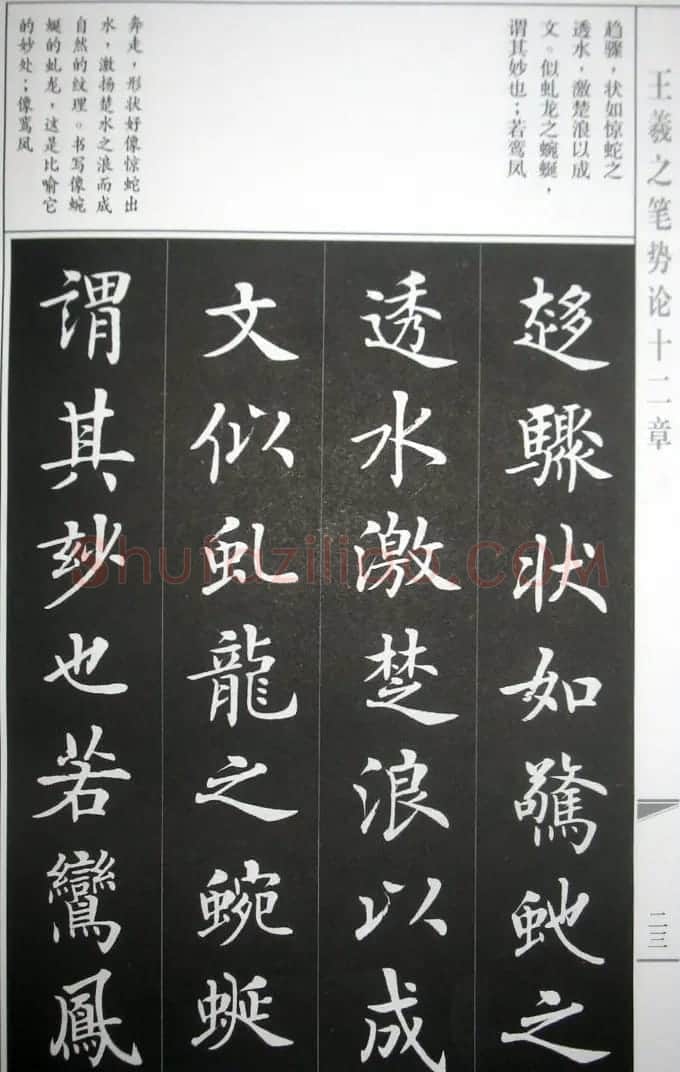 王羲之笔势论十二章
二三
趋骤，状如惊蛇之
透水，激楚浪以成
文。似虬龙之蜿蜒，
谓其妙也；若鸾凤
奔走，形状好像惊蛇出
水，激扬楚水之浪而成
自然的纹理。书写像蜿
蜒的虬龙，这是比喻它
的妙处；像鸾凤
趍驟狀如驚虵之
透水激楚浪以成
文似虬龍之蜿蜒
謂其玅也若鸞鳳
Shufaziliao.COM